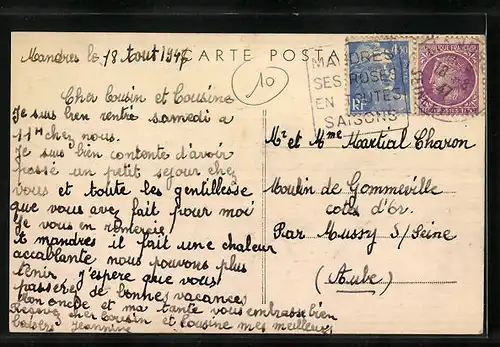 Mandres le 18 Aout 1947
CARTE POSTA
10
MANDRES
SES ROSES
EN TOUTES
SAISONS
4F50
RF
18
47
Cher Cousin et Cousine
Je suis bien rentré samedi a
11H chez nous.
Je suis bien contente d'avoir
passé un petit sejour chez
vous et toute les gentillesse
que vous avez fait pour moi
Je vous en remercie,
A mandres il fait une chaleur
accablante nous pouvons plus
tenir, j'espere que vous
passerez de bonnes vacances
Mon oncle et ma tante vous embrasse bien
Recevez cher Cousin et Cousine mes meilleurs
baisers Jeannine
Mr et Mme Martial Charon
Moulin de Gommeville
cote d'or.
Par Mussy S/Seine
(Aube)